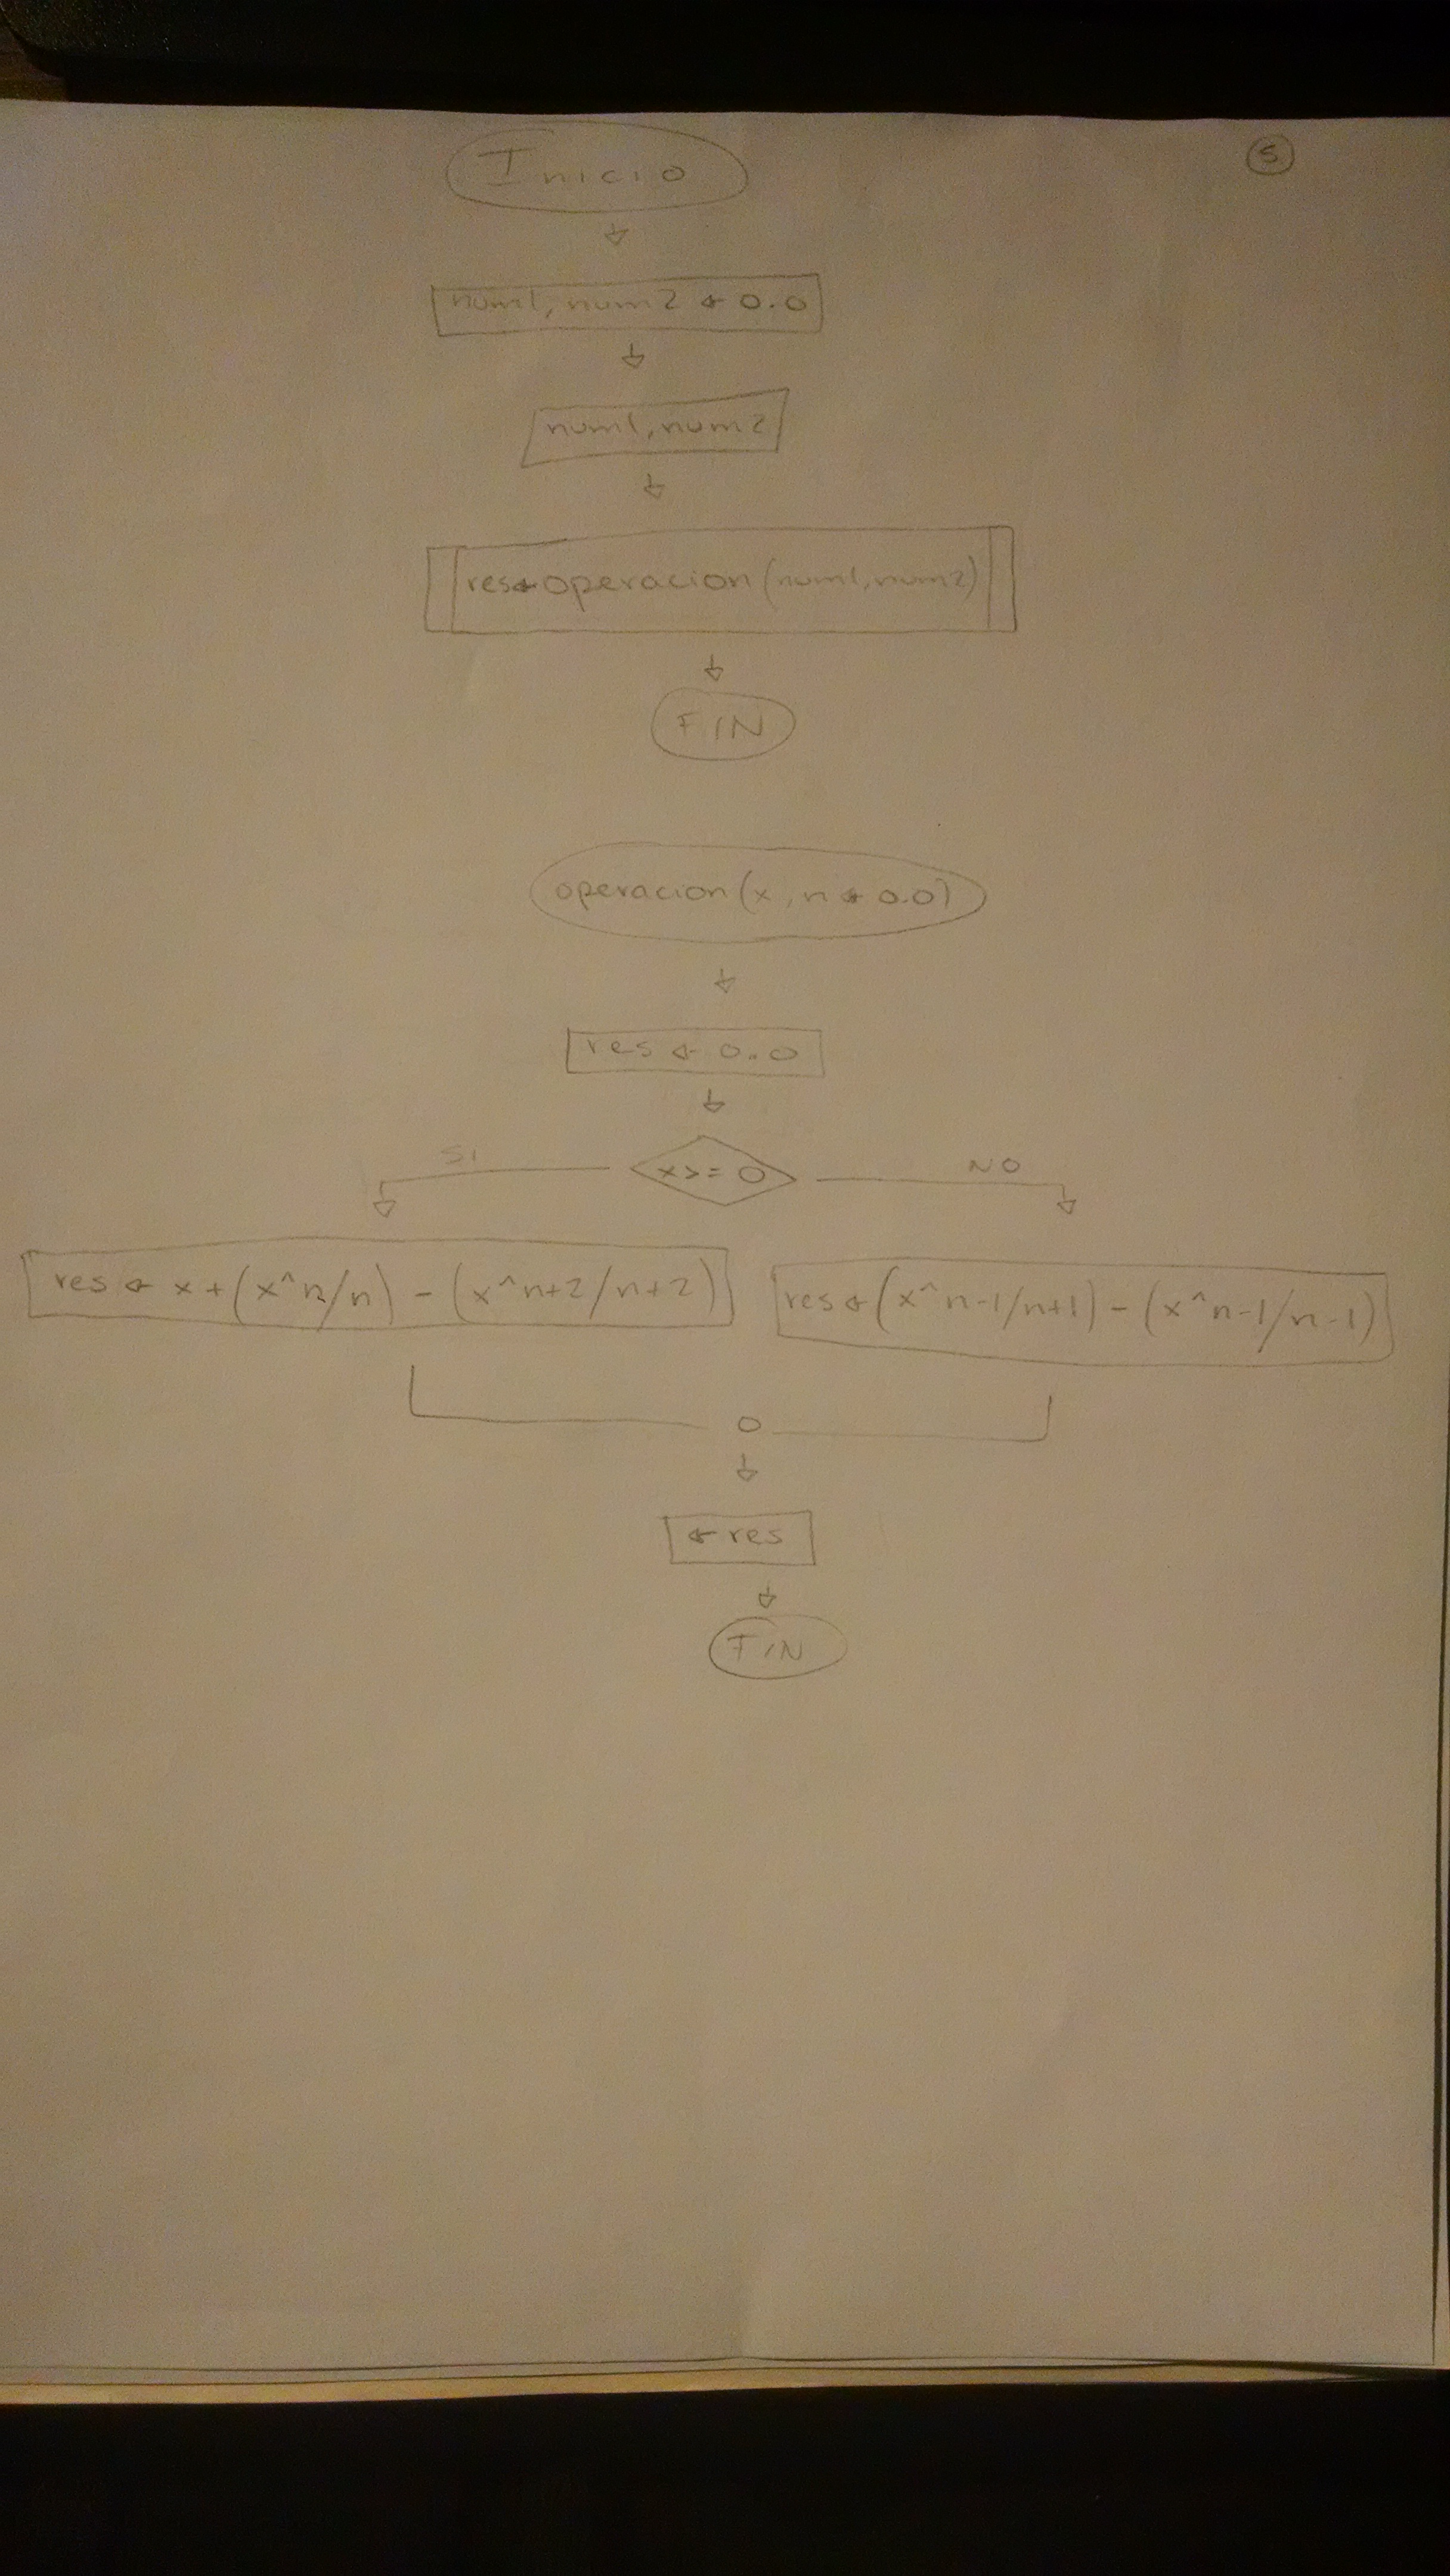 Inicio
5
num1, num2 ← 0.0
num1, num2
res←operacion(num1,num2)
FIN
operacion(x, n ← 0.0)
res ← 0.0
SI
x>= 0
NO
res ← x+(x^n/n) - (x^n+2/n+2)
res←(x^n-1/n+1) - (x^n-1/n-1)
← res
FIN